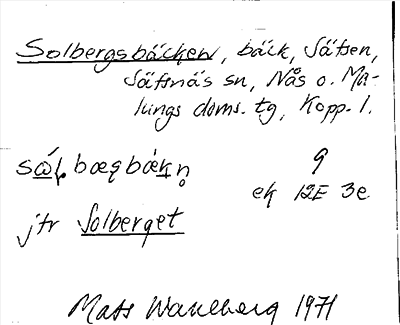 Solbergsbäcken, bäck, Säfsen,
Säfsnäs sn, Nås o. Ma-
lungs doms. tg, Kopp. l.
9
ek 12E 3e
jfr Solberget
Mats Wahlberg 1971